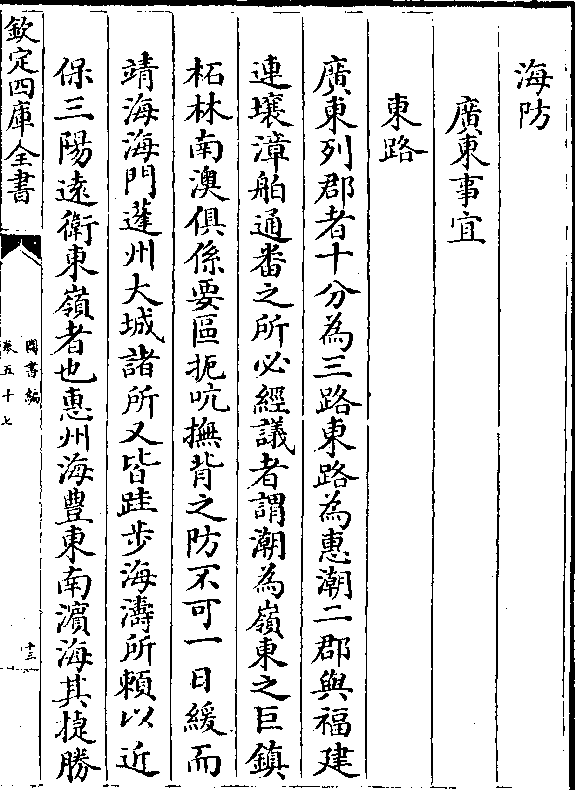 海防
廣東事宜
東路
廣東列郡者十分為三路東路為惠潮二郡與福建
連壤漳舶通番之所必經議者謂潮為嶺東之巨鎮
柘林南澳俱係要區扼吭撫背之防不可一日緩而
靖海海門蓬州大城諸所又皆跬步海濤所賴以近
保三陽逺衛東嶺者也惠州海豊東南濵海其捷勝
欽定四庫全書
圖書編
卷五十七
十三